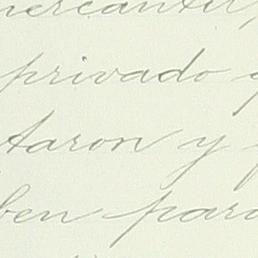 mercantil,
privado
taron y
ben para